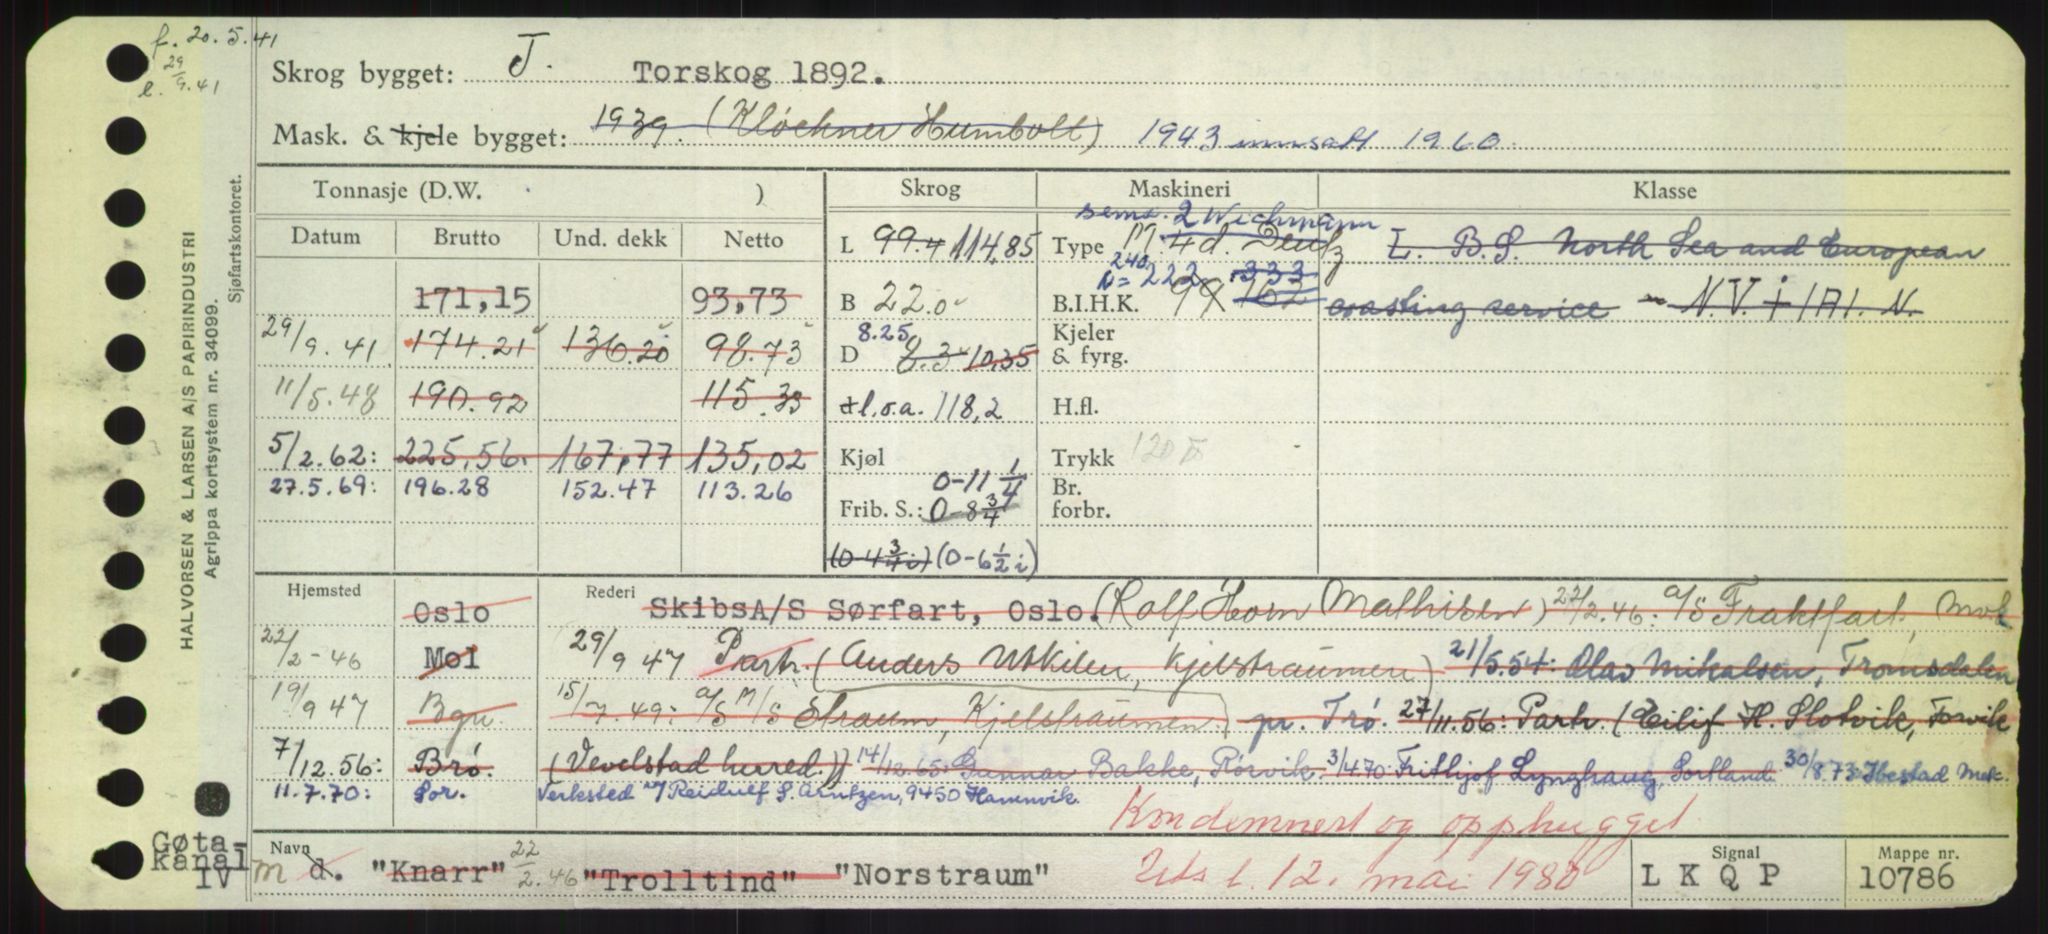 f. 20.5.41
29/9.41
HALVORSEN & LARSEN A/S PAPIRINDUSTRI
Agrippa kortsystem nr. 34099.
Sjøfartskontoret.
Skrog bygget: J. Torskog 1892.
Mask. & kjele bygget: 1939. (Kløckner Humbolt) 1943 innsatt 1960.
Tonnasje (D.W. ) Skrog Maskineri Klasse
Datum Brutto Und. dekk Netto
171,15 93,73
29/9.41 174.21 136.20 98.73
11/5.48 190.92 115.33
5/2.62: 225,56. 167,77 135,02
27.5.69: 196.28 152.47 113.26
L 99.4 114,85
B 22.0
8.25
D 8.3 10,35
l.o.a. 118,2
Kjøl
0-11 1/4
Frib. S.: 0-8 3/4
(0-4 3/4 i) (0-6 1/2 i)
2 Wichmann
Type M 4 d. Deutz
240
N=222 333
B.I.H.K. 99 162
Kjeler
& fyrg.
H.fl.
Trykk 120
Br.
forbr.
L. B.S. North Sea and European
coasting service - N.V. + 1A1. N.
Hjemsted Rederi
Oslo SkibsA/S Sørfart, Oslo. (Rolf Horn Mathisen) 22/2.46: A/S Fraktfart, Mol
22/2-46 Mol 29/9 47 Partr. (Anders Utkilen, Kjelstraumen) 21/5.54: Olav Mikalsen, Tromsdalen
19/9 47 Bgn. 15/7.49: A/S M/S Straum, Kjelstraumen) pr. Trø. 27/11.56: Partr. (Eilif H. Slotvik, Forvik
7/12.56: Brø. (Vevelstad herred.)) 14/12.65: Gunnar Bakke, Rørvik. 3/4.70: Frithjof Lynghaug, Sortland. 30/8.73: Ibestad Mek.
11.7.70: Sor. Verksted v/ Reidulf S. Arntzen, 9450 Hamnvik.
Kondemnert og opphugget
Gøta-
kanal
IV
Navn
m d. "Knarr" 22/2.46 "Trolltind" "Norstraum" 12. mai 1980
Signal
L K Q P
Mappe nr.
10786